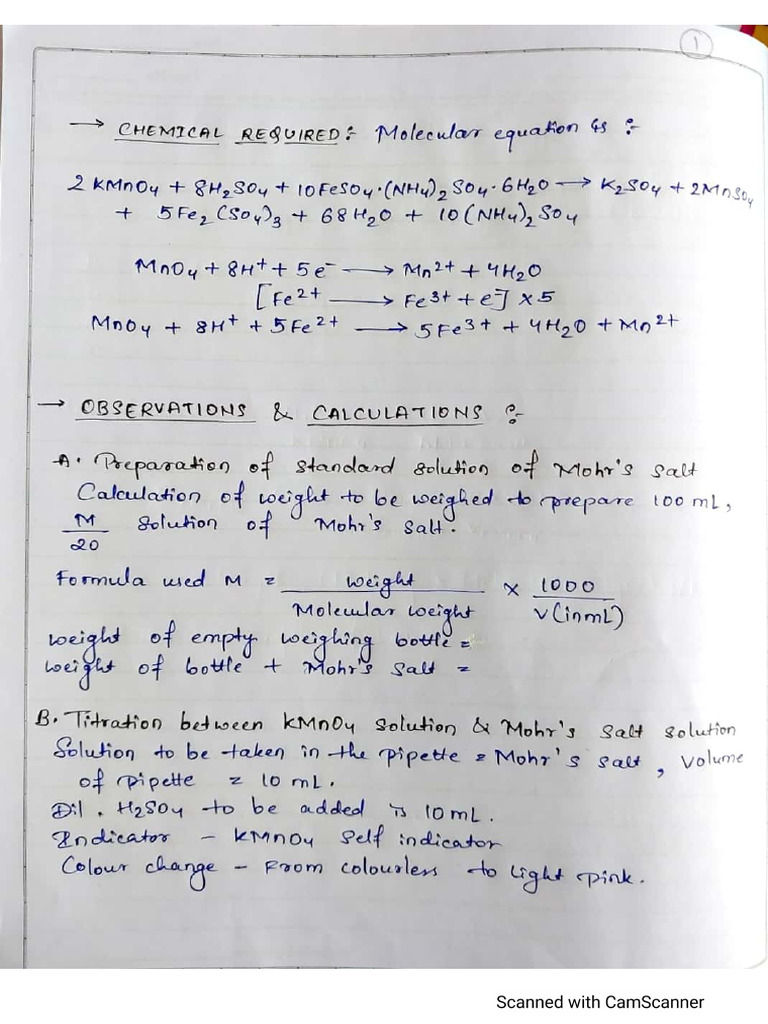 1
→ CHEMICAL REQUIRED :- Molecular equation is :-
2 KMnO4 + 8H2SO4 + 10FeSO4·(NH4)2SO4·6H2O → K2SO4 + 2MnSO4
+ 5Fe2(SO4)3 + 68H2O + 10(NH4)2SO4
MnO4 + 8H+ + 5e- → Mn2+ + 4H2O
[Fe2+ → Fe3+ + e-] x5
MnO4 + 8H+ + 5Fe2+ → 5Fe3+ + 4H2O + Mn2+
→ OBSERVATIONS & CALCULATIONS :-
A. Preparation of standard solution of Mohr's salt
Calculation of weight to be weighed to prepare 100 mL,
M/20 solution of Mohr's salt.
Formula used M = weight/Molecular weight × 1000/V(in mL)
weight of empty weighing bottle =
weight of bottle + Mohr's salt =
B. Titration between KMnO4 solution & Mohr's salt solution
Solution to be taken in the pipette = Mohr's salt, volume
of pipette = 10 mL.
Dil. H2SO4 to be added is 10 mL.
Indicator - KMnO4 self indicator
Colour change - From colourless to light pink.
Scanned with CamScanner